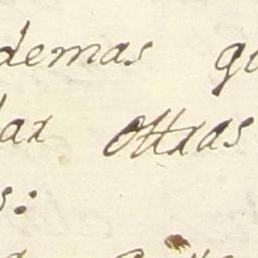 demas qu
dar ottras
s: